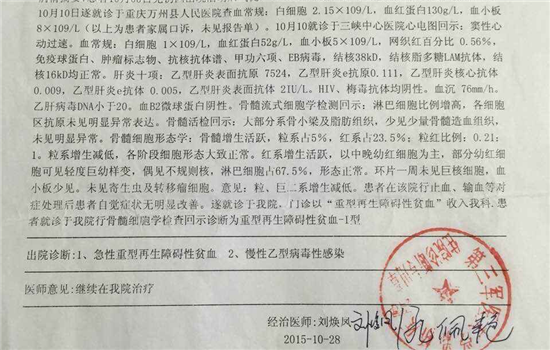 10月10日遂就诊于重庆万州县人民医院查血常规：白细胞 2.15×109/L，血红蛋白130g/L，血小板
8×109/L（以上为患者家属口诉，未见报告单）。10月10就诊于三峡中心医院心电图回示：窦性心
动过速。血常规：白细胞 1×109/L，血红蛋白52g/L，血小板5×109/L，网织红百分比 0.56%，
免疫球蛋白、肿瘤标志物、抗核抗体谱、甲功六项、EB病毒，结核38kD，结核脂多糖LAM抗体，结
核16kD均为正常。肝炎十项：乙型肝炎表面抗原 7524，乙型肝炎e抗原0.111，乙型肝炎核心抗体
0.009，乙型肝炎e抗体 0.005，乙型肝炎表面抗体 2IU/L。HIV、梅毒抗体均阴性。血沉 76mm/h。
乙肝病毒DNA小于20。血B2微球蛋白阴性。骨髓流式细胞学检测回示：淋巴细胞比例增高，各细胞
区抗原未见明显异常表达。骨髓活检回示：大部分系骨小梁及脂肪组织，少见少量骨髓造血组织，
未见明显异常。骨髓细胞形态学：骨髓增生活跃，粒系占5%，红系占23.5%；粒红比例：0.21：
1。粒系增生减低，各阶段细胞形态大致正常。红系增生活跃，以中晚幼红细胞为主，部分幼红细
胞可见轻度巨幼样变，偶见不规则核，淋巴细胞占67.5%，形态正常。环片一周未见巨核细胞，血
小板少见。未见寄生虫及转移瘤细胞。意见：粒、巨二系增生减低。患者在该院行止血、输血等对
症处理后患者自觉症状无明显改善。遂就诊于我院，门诊以“重型再生障碍性贫血”收入我科.患
者就诊于我院行骨髓细胞学检查回示诊断为重型再生障碍性贫血-1型
出院诊断：1、急性重型再生障碍性贫血 2、慢性乙型病毒性感染
医师意见：继续在我院治疗
第三军
经治医师：刘焕凤
2015-10-28